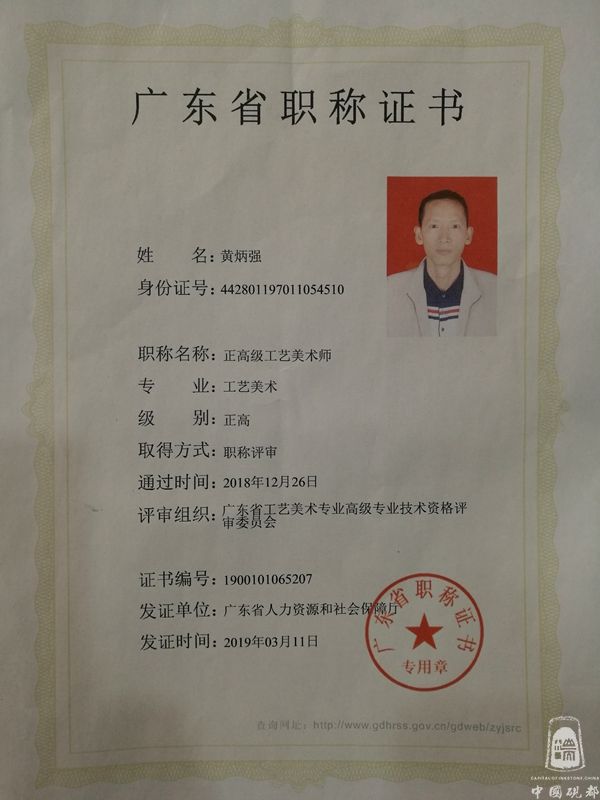 广东省职称证书
姓 名：黄炳强
身份证号：442801197011054510
职称名称：正高级工艺美术师
专 业：工艺美术
级 别：正高
取得方式：职称评审
通过时间：2018年12月26日
评审组织：广东省工艺美术专业高级专业技术资格评
审委员会
证书编号：1900101065207
发证单位：广东省人力资源和社会保障厅
发证时间：2019年03月11日
广东省职称证书
专用章
查询网址：http://www.gdhrss.gov.cn/gdweb/zyjsrc
CAPITAL OF INKSTONE, CHINA
中國硯都